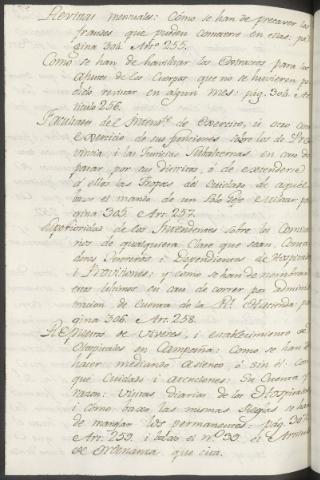 Revistas mensuales: Cómo se han de precaver los
fraudes que pueden cometerse en ellas: pa-
gina 304. Artº 255.
Como se han de havilitar los Extractos para los
ajustes de los Cuerpos que no se huvieren po-
dido revistar en algun mes: pag. 304. Ar-
ticulo 256.
Facultades del Intendte de Exercito, ú otro con
exercicio de sus funciones sobre los de Pro-
vincia, i las Justicias Subalternas, en caso de
pasar por sus distritos, ó de extenderse
á ellos las Tropas del Cuidado de aquel
baxo el mando de un solo Gefe militar: pa-
gina 305. Art. 257.
Superioridad de los Intendentes sobre los Comisa-
rios de qualquiera Clase que sean, Conta-
dores, Tesoreros, i Dependientes de Hospitales
i Provisiones; y cómo se han de nombrar
estos ultimos en caso de correr por adminis-
tracion de cuenta de la Rl. Hacienda: pa-
gina 306. Art. 258.
Repuestos de Viveres, i establecimiento de
Hospitales en Campaña: Cómo se han de
hacer mediando Asiento ó sin él: Con
que Cuidado i atenciones: La Cuenta y
razon: Visitas diarias de los Hospitales
i Cómo baxo las mismas Reglas se han
de manejar los permanentes: pag. 307
Art. 259. i baxo el nº 39. el Articulo
de Ordenanza que cita.